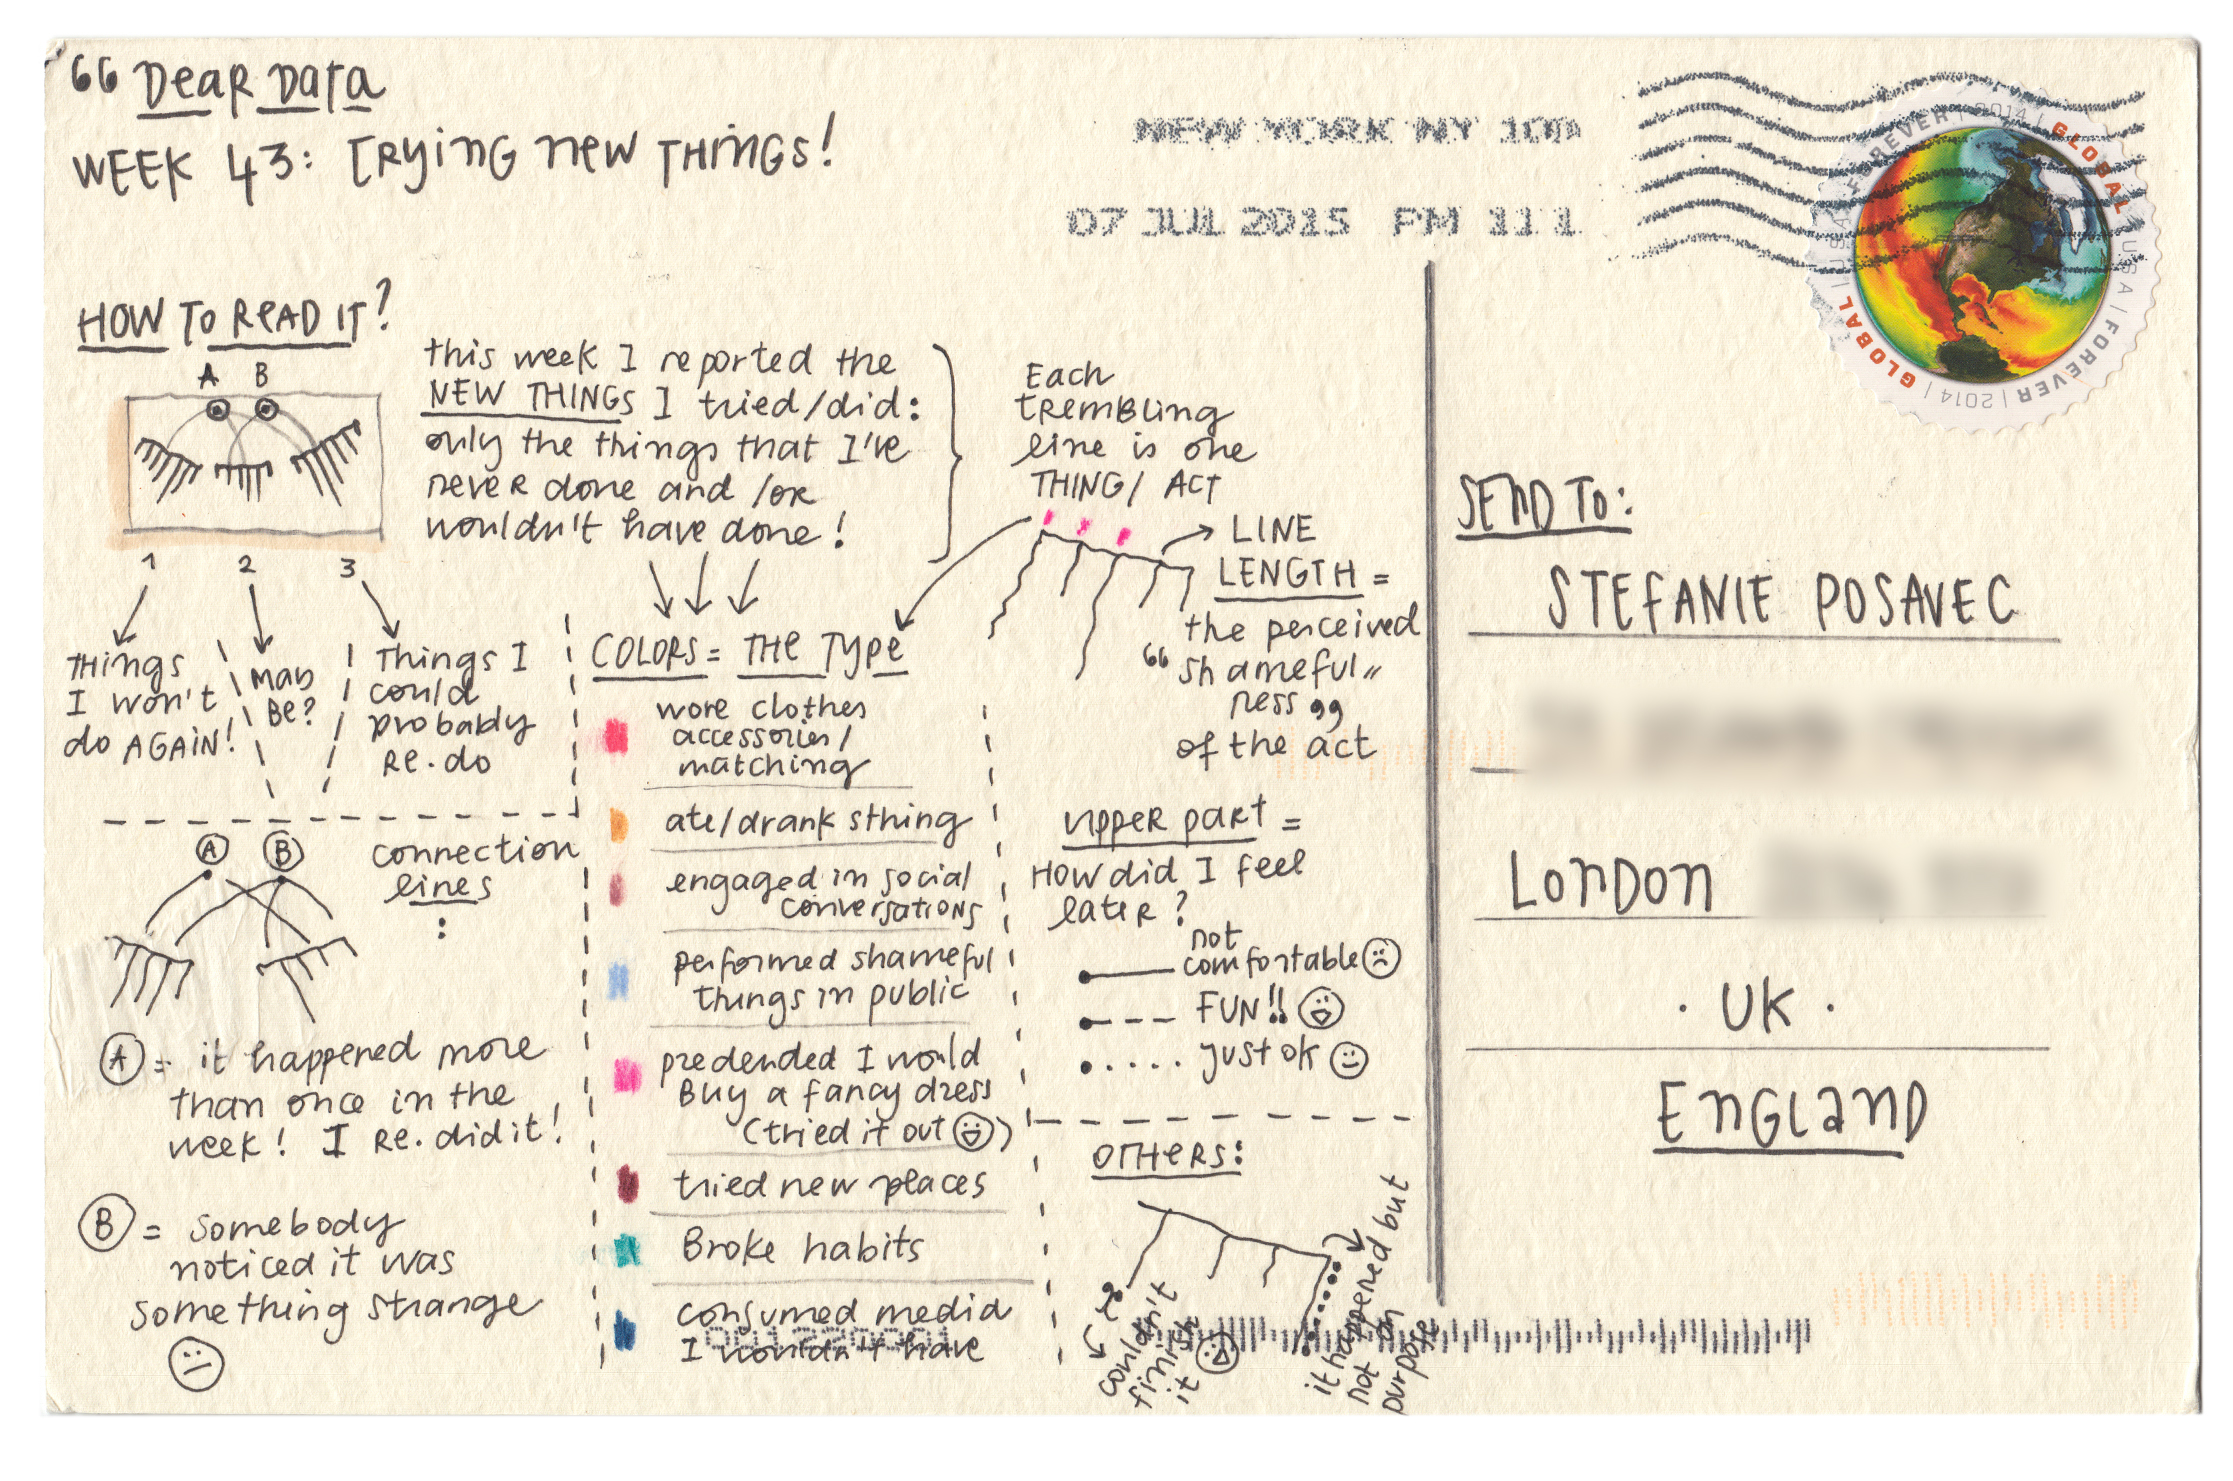 “ Dear Data
WEEK 43: Trying new THINGS!
NEW YORK NY 100
07 JUL 2015 PM 11 1
GLOBAL | USA | FOREVER | 2014 | GLOBAL | USA | FOREVER | 2014 |
HOW TO READ IT?
A B
1 2 3
THINGS
I won't
do AGAIN!
MAY
BE?
Things I
could
probably
RE.do
this week I reported the
NEW THINGS I tried/did:
only the things that I've
never done and/or
wouldn't have done!
Each
trembling
line is one
THING/ ACT
LINE
LENGTH =
the perceived
“shameful
ness”
of the act
COLORS = THE Type
wore clothes
accessories/
matching
ate/drank sthing
engaged in social
conversations
performed shameful
things in public
predended I would
Buy a fancy dress
(tried it out )
tried new places
Broke habits
consumed media
I wouldn't have
A B
connection
lines
:
A = it happened more
than once in the
week! I RE.did it!
B = somebody
noticed it was
something strange
UPPER PART =
HOW did I feel
later?
not
comfortable
FUN!!
just ok
OTHERS:
couldn't
finish
it
it happened but
not on
purpose
SEND TO:
STEFANIE POSAVEC
LONDON
· UK ·
ENGLAND